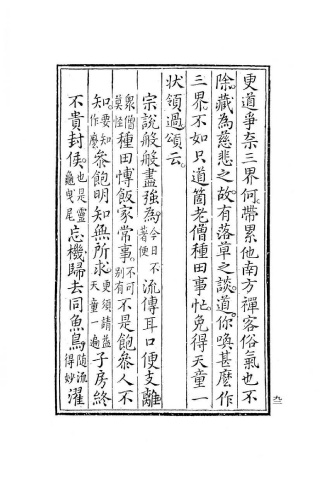 更道爭奈三界何。帶累他南方禪客俗氣也不
除。藏為慈悲之故有落草之談。道。你喚甚麼作
三界不如只道箇老僧種田事忙。免得天童一
狀領過。頌云。
宗說般般盡強為。今日不著便流傳耳口便支離
眾僧莫怪種田愽飯家常事。不可別有不是飽參人不
知。要知作麼參飽明知無所求。更須請益天童一遍子房終
不貴封侯。也是靈龜曳尾忘機歸去同魚鳥隨流得妙濯
九二